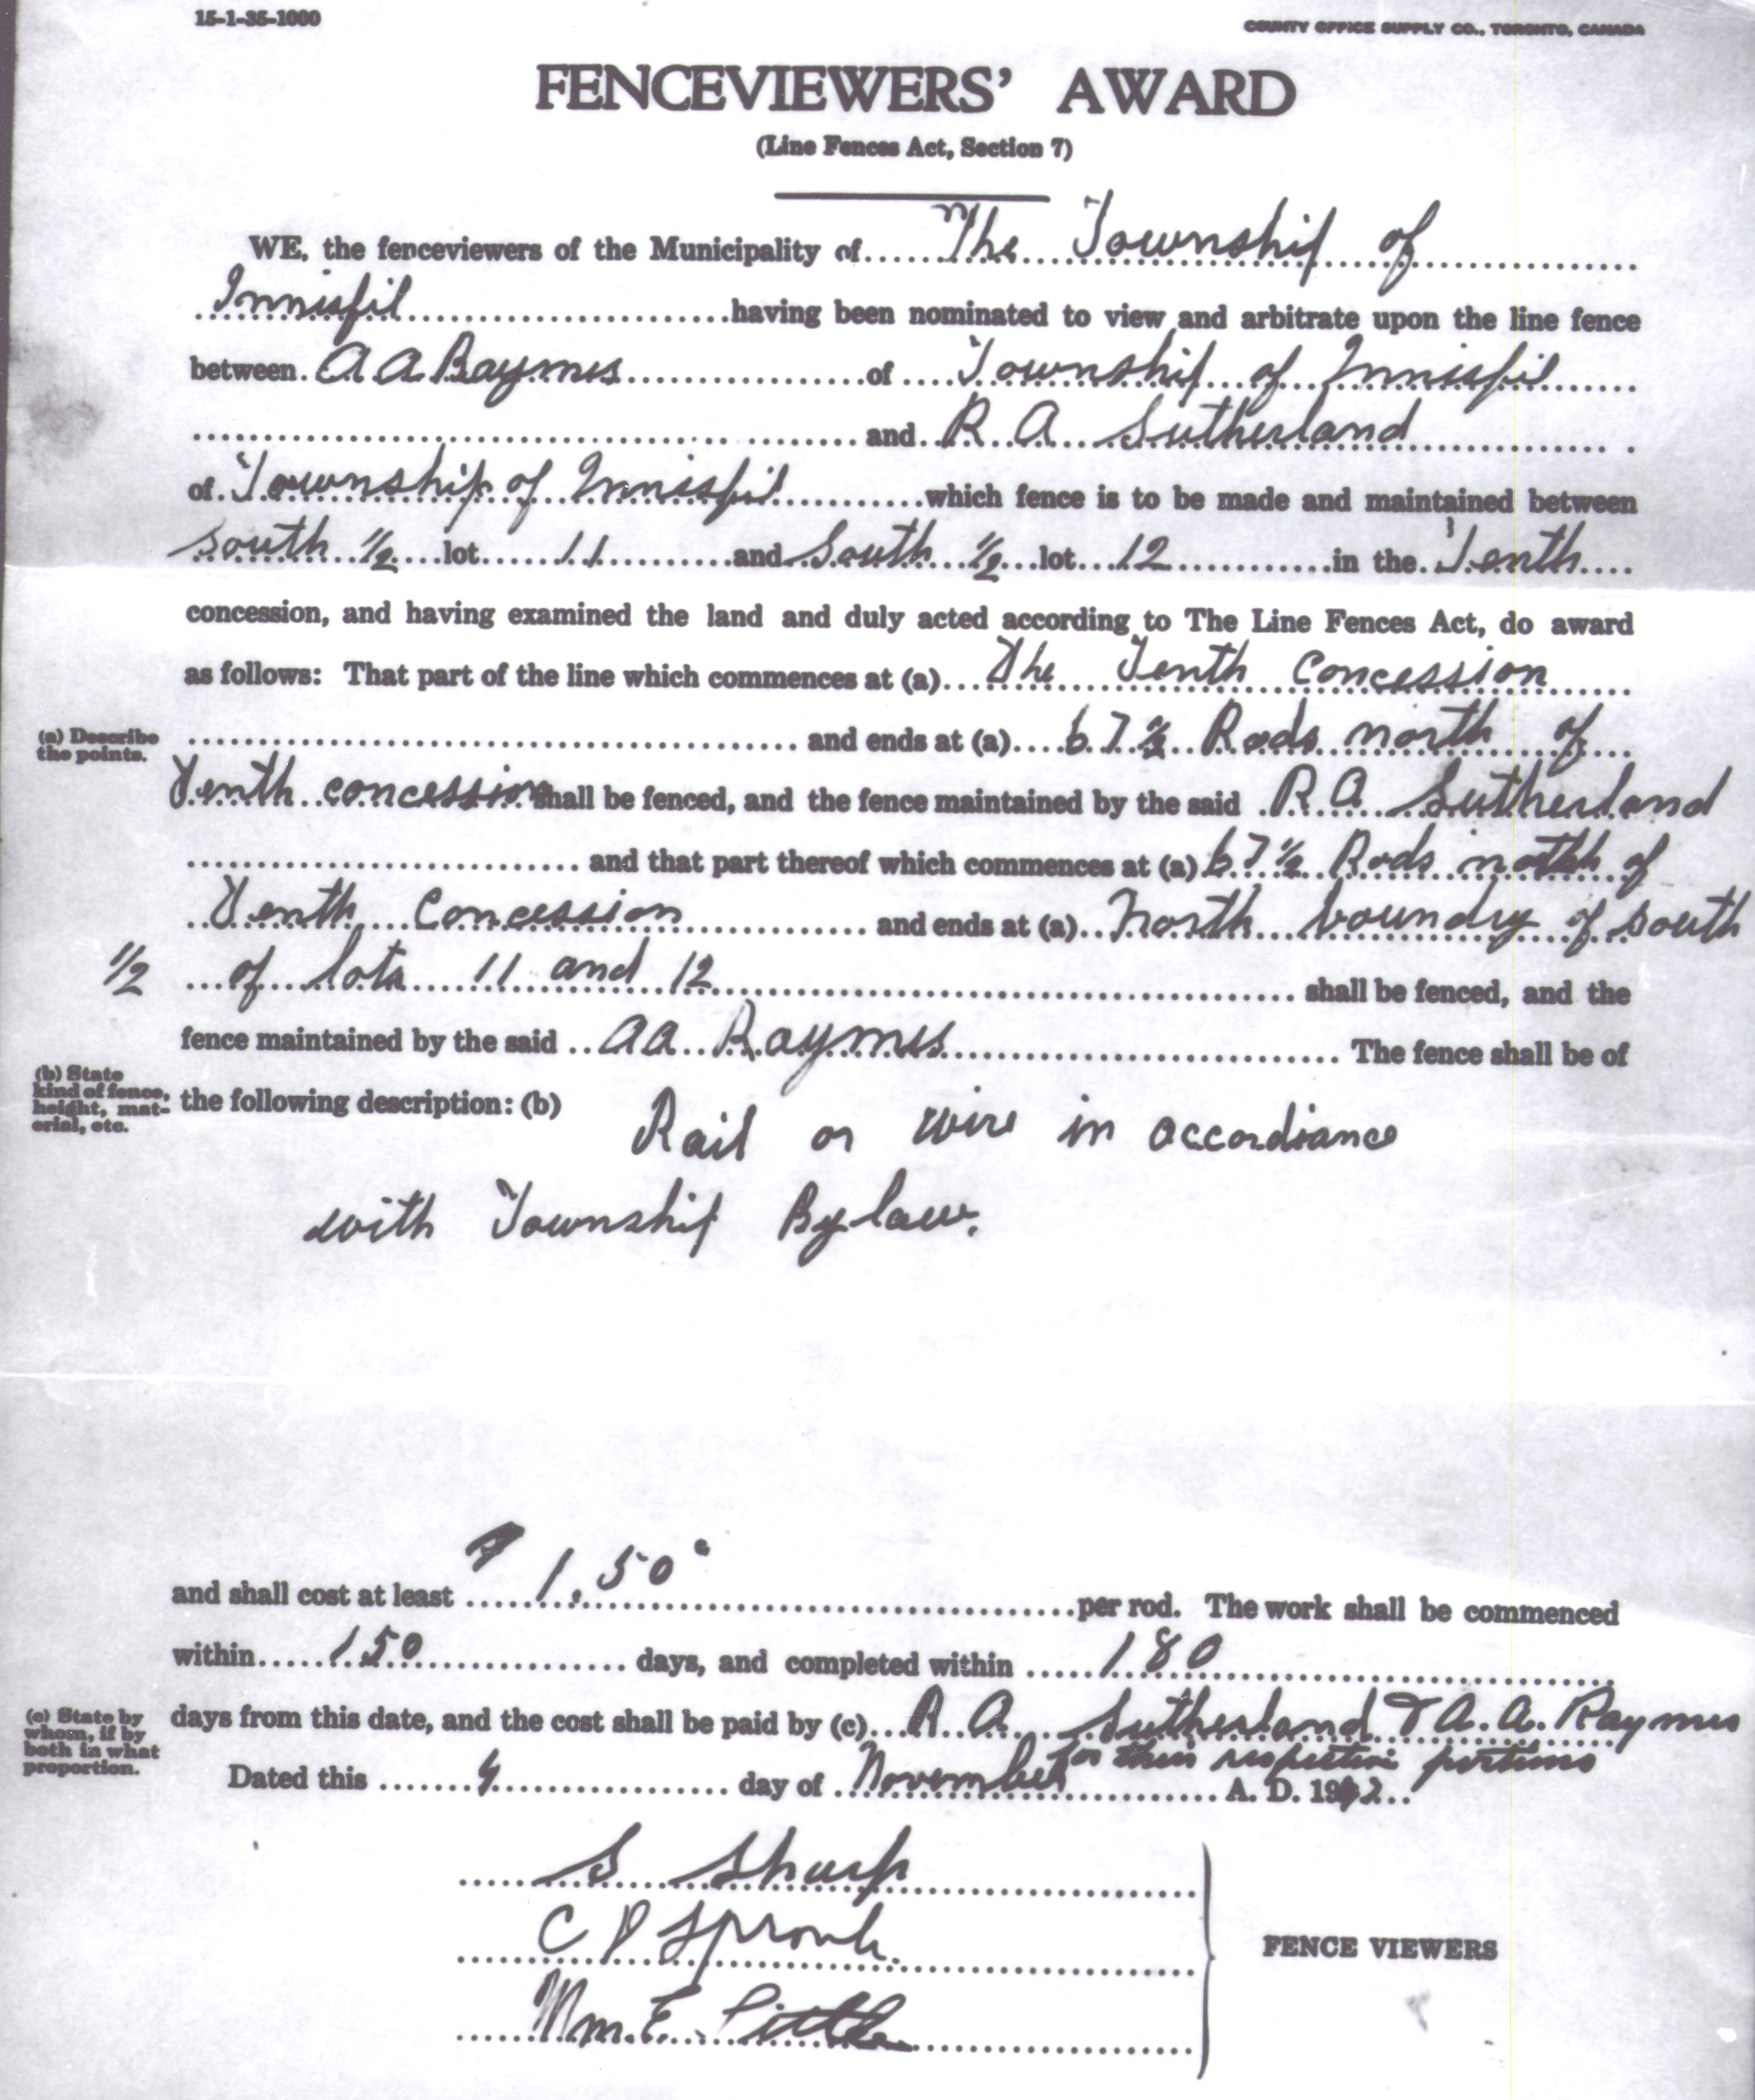 15-1-35-1000
COUNTY OFFICE SUPPLY CO., TORONTO, CANADA
FENCEVIEWERS' AWARD
(Line Fences Act, Section 7)
WE, the fenceviewers of the Municipality of The Township of
Innisfil having been nominated to view and arbitrate upon the line fence
between A A Raymes of Township of Innisfil
and R A Sutherland
of Township of Innisfil which fence is to be made and maintained between
South 1/2 lot 11 and South 1/2 lot 12 in the Tenth
concession, and having examined the land and duly acted according to The Line Fences Act, do award
as follows: That part of the line which commences at (a) The Tenth Concession
(a) Describe
the points.
and ends at (a) 67 1/2 Rods north of
Tenth concession shall be fenced, and the fence maintained by the said R.A. Sutherland
and that part thereof which commences at (a) 67 1/2 Rods north of
Tenth Concession and ends at (a) North boundry of south
1/2 of lots 11 and 12 shall be fenced, and the
fence maintained by the said AA Raymes The fence shall be of
(b) State
kind of fence,
height, mat-
erial, etc.
the following description: (b) Rail or wire in accordiance
with Township Bylaw.
and shall cost at least $1.50 per rod. The work shall be commenced
within 150 days, and completed within 180
(c) State by
whom, if by
both in what
proportion.
days from this date, and the cost shall be paid by (c) R. A. Sutherland & A. A. Raymes
for their respective portions
Dated this 4 day of November A. D. 1942
S Sharp
C P Sproule
Wm. E.
FENCE VIEWERS